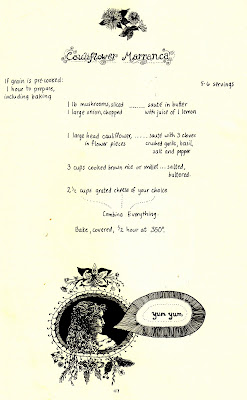 Cauliflower Marranca
If grain is pre-cooked:
1 hour to prepare,
including baking
5-6 servings
1 lb mushrooms, sliced ........ sauté in butter
1 large onion, chopped with juice of 1 lemon
1 large head cauliflower, ........ sauté with 3 cloves
in flower pieces crushed garlic, basil,
salt and pepper
3 cups cooked brown rice or millet ... salted,
buttered
2½ cups grated cheese of your choice
Combine Everything.
Bake, covered, ½ hour at 350°.
yum yum